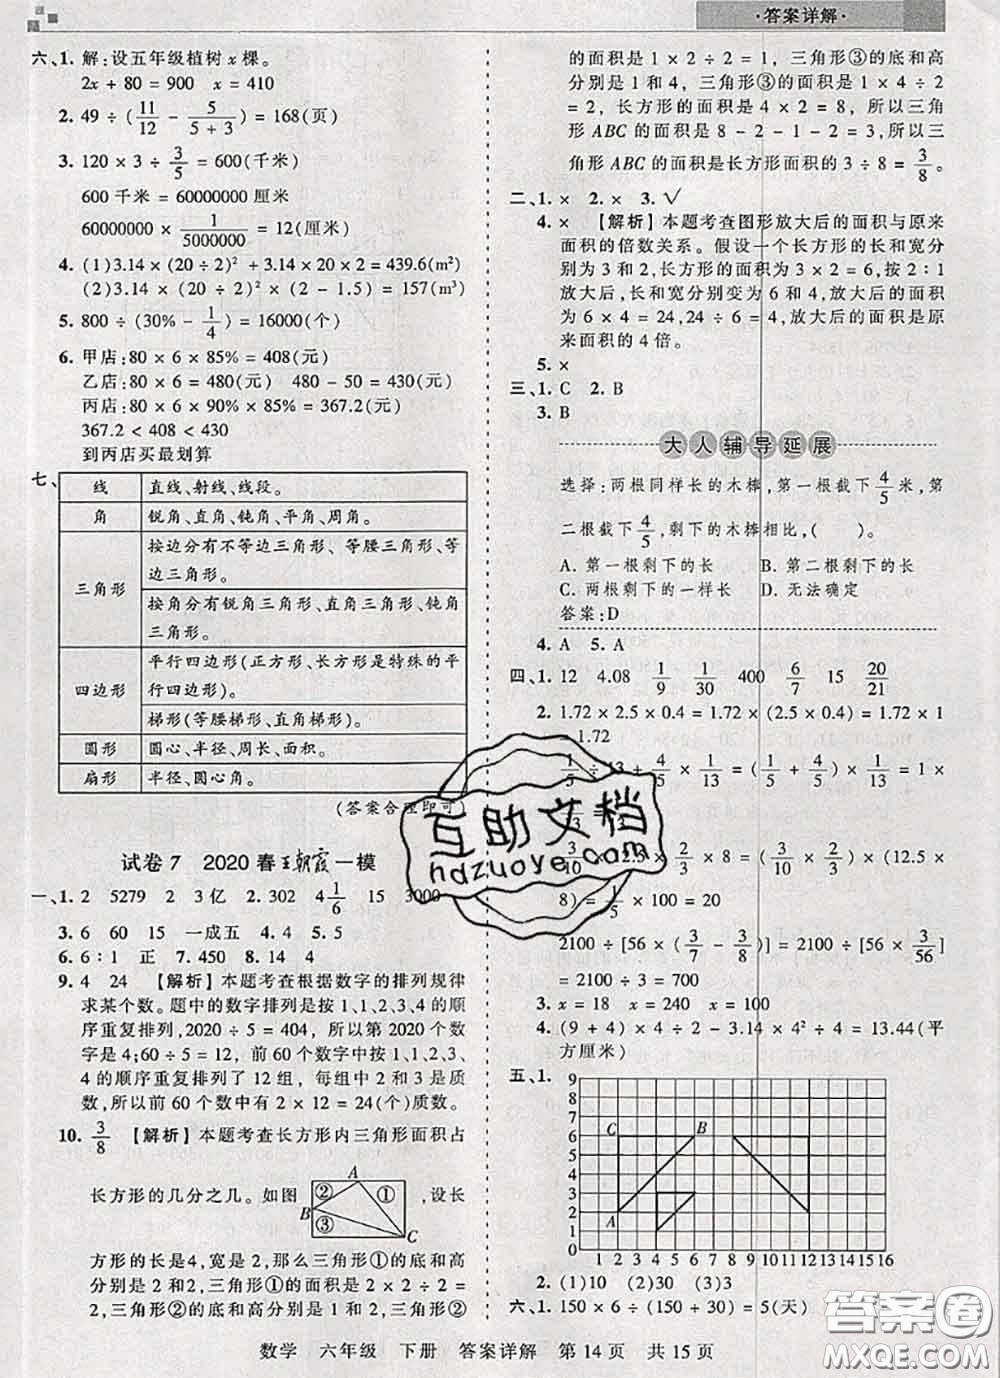 ·答案详解·
六、1. 解:设五年级植树 x 棵。
2x + 80 = 900　x = 410
2. 49 ÷ (11/12 - 5/(5 + 3)) = 168(页)
3. 120 × 3 ÷ 3/5 = 600(千米)
600 千米 = 60000000 厘米
60000000 × 1/5000000 = 12(厘米)
4. (1)3.14 × (20 ÷ 2)² + 3.14 × 20 × 2 = 439.6(m²)
(2)3.14 × (20 ÷ 2)² × (2 - 1.5) = 157(m³)
5. 800 ÷ (30% - 1/4) = 16000(个)
6. 甲店:80 × 6 × 85% = 408(元)
乙店:80 × 6 = 480(元)　480 - 50 = 430(元)
丙店:80 × 6 × 90% × 85% = 367.2(元)
367.2 < 408 < 430
到丙店买最划算
七、
线　直线、射线、线段。
角　锐角、直角、钝角、平角、周角。
三角形　按边分有不等边三角形、等腰三角形、等
边三角形。
按角分有锐角三角形、直角三角形、钝角
三角形。
四边形　平行四边形(正方形、长方形是特殊的平
行四边形)。
梯形(等腰梯形、直角梯形)。
圆形　圆心、半径、周长、面积。
扇形　半径、圆心角。
(答案合理即可)
试卷 7　2020 春王朝霞一模
一、1. 2　5279　2　3 亿　2. 302　4 1/6　15　3000
3. 6　60　15　一成五　4. 4　5. 5
6. 6∶1　正　7. 450　8. 14　4
9. 4　24　【解析】本题考查根据数字的排列规律
求某个数。题中的数字排列是按 1、1、2、3、4 的顺
序重复排列,2020 ÷ 5 = 404，所以第 2020 个数
字是 4;60 ÷ 5 = 12，前 60 个数字中按 1、1、2、3、
4 的顺序重复排列了 12 组，其中 2 和 3 是质
数,所以前 60 个数中有 2 × 12 = 24(个)质数。
10. 3/8　【解析】本题考查长方形内三角形面积占
长方形的几分之几。如图　② A ① B ③ C　,设长
方形的长是4,宽是 2,那么三角形①的底和高
分别是 2 和2,三角形①的面积是 2 × 2 ÷ 2 =
2,三角形②的底和高分别是 1 和 2,三角形②
的面积是 1 × 2 ÷ 2 = 1，三角形③的底和高
分别是 1 和 4，三角形③的面积是 1 × 4 ÷ 2
= 2，长方形的面积是 2 × 4 = 8，所以三角
形 ABC 的面积是 8 - 2 - 1 - 2 = 3,所以三
角形 ABC 的面积是长方形面积的 3 ÷ 8 = 3/8。
二、1. ×　2. ×　3. √
4. ×　【解析】本题考查图形放大后的面积与原来
面积的倍数关系。假设一个长方形的长和宽分
别为 3 和 2,原来的面积为 3 × 2 = 6,按 2∶1
放大后,长和宽分别变为 6 和 4,放大后的面积
为 6 × 4 = 24,24 ÷ 6 = 4,放大后的面积是原
来面积的 4 倍。
5. ×
三、1. C　2. B
3. B
大人辅导延展
选择:两根同样长的木棒,第一根截下 4/5 米,第
二根截下 4/5,剩下的木棒相比,(　)。
A. 第一根剩下的长　B. 第二根剩下的长
C. 两根剩下的一样长　D. 无法确定
答案:D
4. A　5. A
四、1. 12　4.08　1/9　1/30　400　6/7　15　20/21
2. 1.72 × 2.5 × 0.4 = 1.72 × (2.5 × 0.4) = 1.72 × 1
= 1.72
1/5 ÷ 13 + 4/5 × 1/13 = (1/5 + 4/5) × 1/13 = 1 ×
× 2/3 = 3/10 × 2/3 ÷ (12.5 ×
8) = 1/5 × 100 = 20
2100 ÷ [56 × (3/7 - 3/8)] = 2100 ÷ [56 × 3/56]
= 2100 ÷ 3 = 700
3. x = 18　x = 240　x = 100
4. (9 + 4) × 4 ÷ 2 - 3.14 × 4² ÷ 4 = 13.44(平
方厘米)
五、1.
9
8
7
6
5
4
3
2
1
0
C　B
A
1 2 3 4 5 6 7 8 9 10 11 12 13 14 15 16
2. (1)10　(2)30　(3)3
六、1. 150 × 6 ÷ (150 + 30) = 5(天)
数学　六年级　下册　答案详解　第 14 页　共 15 页
互助文档
hdzuoye.com
答案圈
MXQE.COM